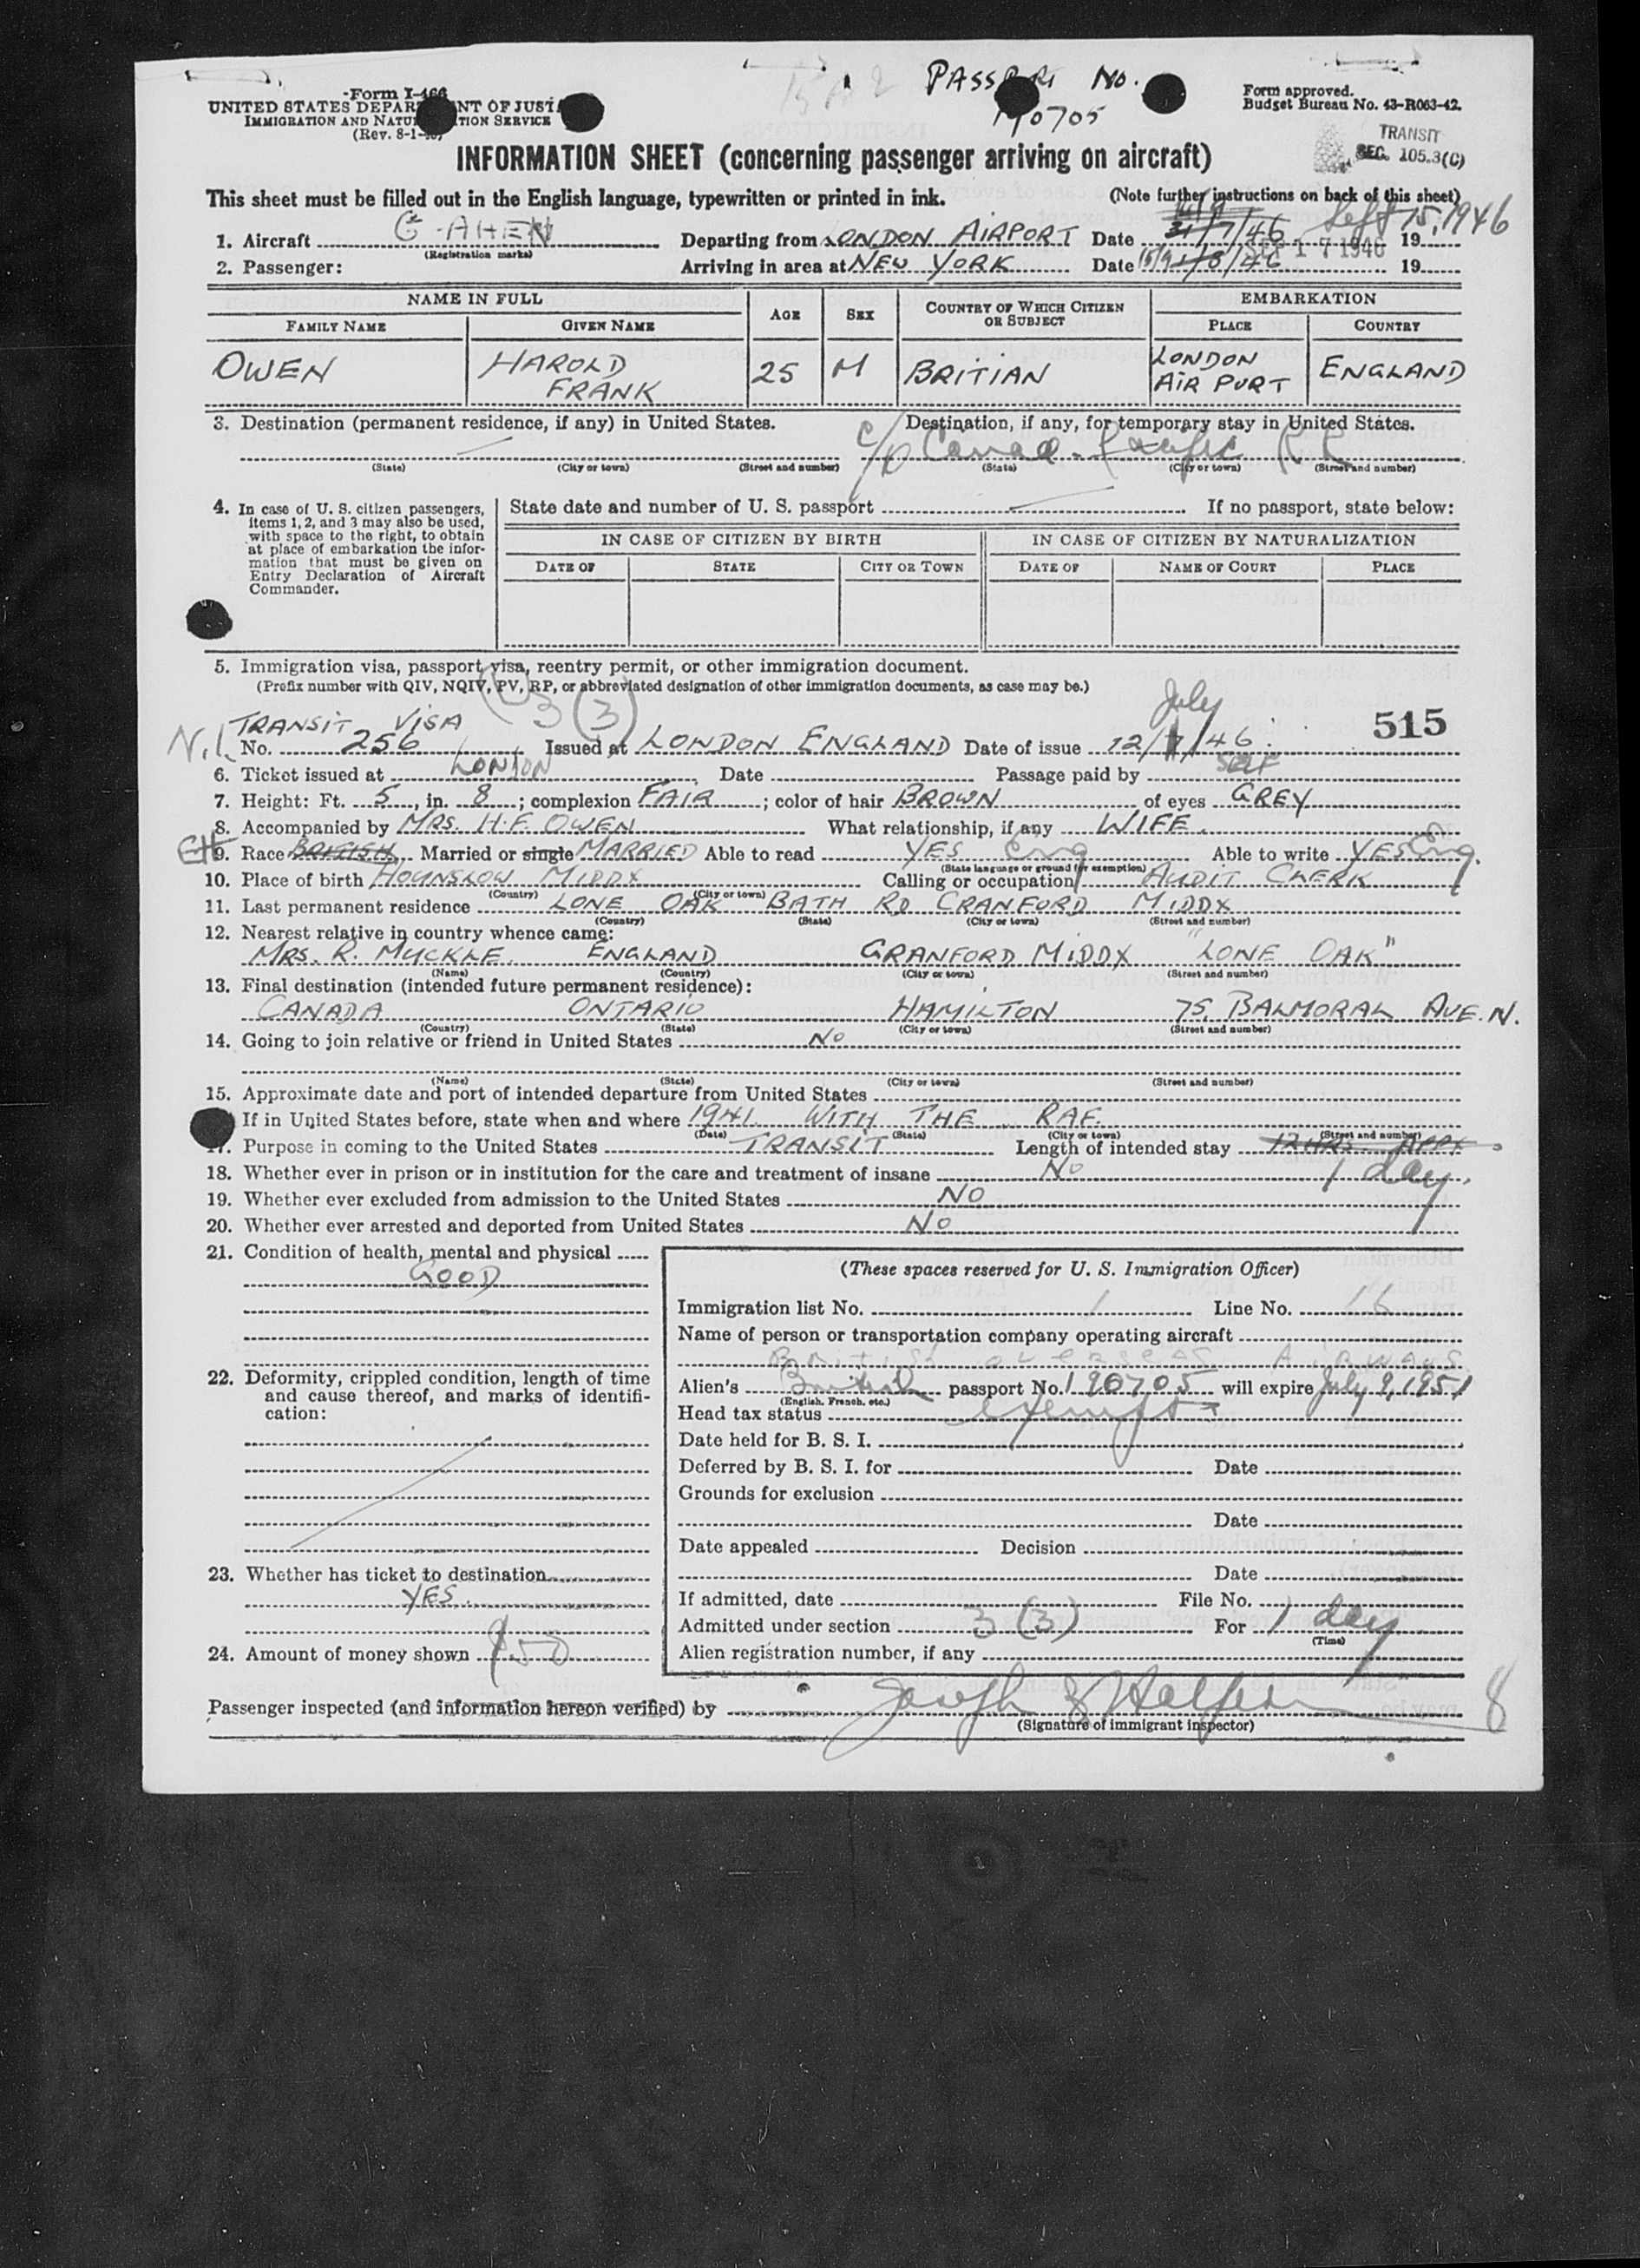 PASSPORT NO.
190705
Form I-466
UNITED STATES DEPAR NT OF JUSTI
IMMIGRATION AND NATU TION SERVICE
(Rev. 8-1-
Form approved.
Budget Bureau No. 43-R063-42.
TRANSIT
SEC. 105.3(C)
INFORMATION SHEET (concerning passenger arriving on aircraft)
This sheet must be filled out in the English language, typewritten or printed in ink. (Note further instructions on back of this sheet)
1. Aircraft G-AHEN Departing from LONDON AIRPORT Date 31/7/46 Sept 15, 1946 19
(Registration marks)
2. Passenger: Arriving in area at NEW YORK Date 15/9 1/8/46 SEP 17 1946 19
NAME IN FULL AGE SEX COUNTRY OF WHICH CITIZEN OR SUBJECT EMBARKATION
FAMILY NAME GIVEN NAME PLACE COUNTRY
OWEN HAROLD FRANK 25 M BRITIAN LONDON AIR PORT ENGLAND
3. Destination (permanent residence, if any) in United States. Destination, if any, for temporary stay in United States.
c/o Canad. Pacific RR
(State) (City or town) (Street and number) (State) (City or town) (Street and number)
4. In case of U. S. citizen passengers, items 1, 2, and 3 may also be used, with space to the right, to obtain at place of embarkation the information that must be given on Entry Declaration of Aircraft Commander.
State date and number of U. S. passport If no passport, state below:
IN CASE OF CITIZEN BY BIRTH IN CASE OF CITIZEN BY NATURALIZATION
DATE OF STATE CITY OR TOWN DATE OF NAME OF COURT PLACE
5. Immigration visa, passport visa, reentry permit, or other immigration document.
(Prefix number with QIV, NQIV, PV, RP, or abbreviated designation of other immigration documents, as case may be.)
3 (3)
July
515
TRANSIT VISA
N.I. No. 256 Issued at LONDON ENGLAND Date of issue 12/7/46
6. Ticket issued at LONDON Date Passage paid by SELF
7. Height: Ft. 5, in. 8; complexion FAIR; color of hair BROWN of eyes GREY
8. Accompanied by MRS. H.F. OWEN What relationship, if any WIFE.
9. Race BRITISH Married or single MARRIED Able to read YES Eng Able to write YES Eng.
(State language or ground for exemption)
10. Place of birth HOUNSLOW MIDDX Calling or occupation AUDIT CLERK
(Country) (City or town)
11. Last permanent residence LONE OAK BATH RD CRANFORD MIDDX
(Country) (State) (City or town) (Street and number)
12. Nearest relative in country whence came:
MRS. R. MUCKLE. ENGLAND GRANFORD MIDDX "LONE OAK"
(Name) (Country) (City or town) (Street and number)
13. Final destination (intended future permanent residence):
CANADA ONTARIO HAMILTON 75, BALMORAL AVE. N.
(Country) (State) (City or town) (Street and number)
14. Going to join relative or friend in United States No
(Name) (State) (City or town) (Street and number)
15. Approximate date and port of intended departure from United States
If in United States before, state when and where 1941. WITH THE RAF.
(Date) (State) (City or town) (Street and number)
17. Purpose in coming to the United States TRANSIT Length of intended stay 12 HRS. APPX
1 day.
18. Whether ever in prison or in institution for the care and treatment of insane No
19. Whether ever excluded from admission to the United States NO
20. Whether ever arrested and deported from United States No
21. Condition of health, mental and physical
GOOD
22. Deformity, crippled condition, length of time and cause thereof, and marks of identification:
23. Whether has ticket to destination
YES.
24. Amount of money shown $50
(These spaces reserved for U. S. Immigration Officer)
Immigration list No. 1 Line No. 16
Name of person or transportation company operating aircraft
British overseas Airways
Alien's British passport No. 190705 will expire July 9, 1951
(English, French, etc.)
Head tax status exempt
Date held for B. S. I.
Deferred by B. S. I. for Date
Grounds for exclusion
Date
Date appealed Decision
Date
If admitted, date File No.
Admitted under section 3 (3) For 1 day
(Time)
Alien registration number, if any
Passenger inspected (and information hereon verified) by Joseph Halfern 8
(Signature of immigrant inspector)